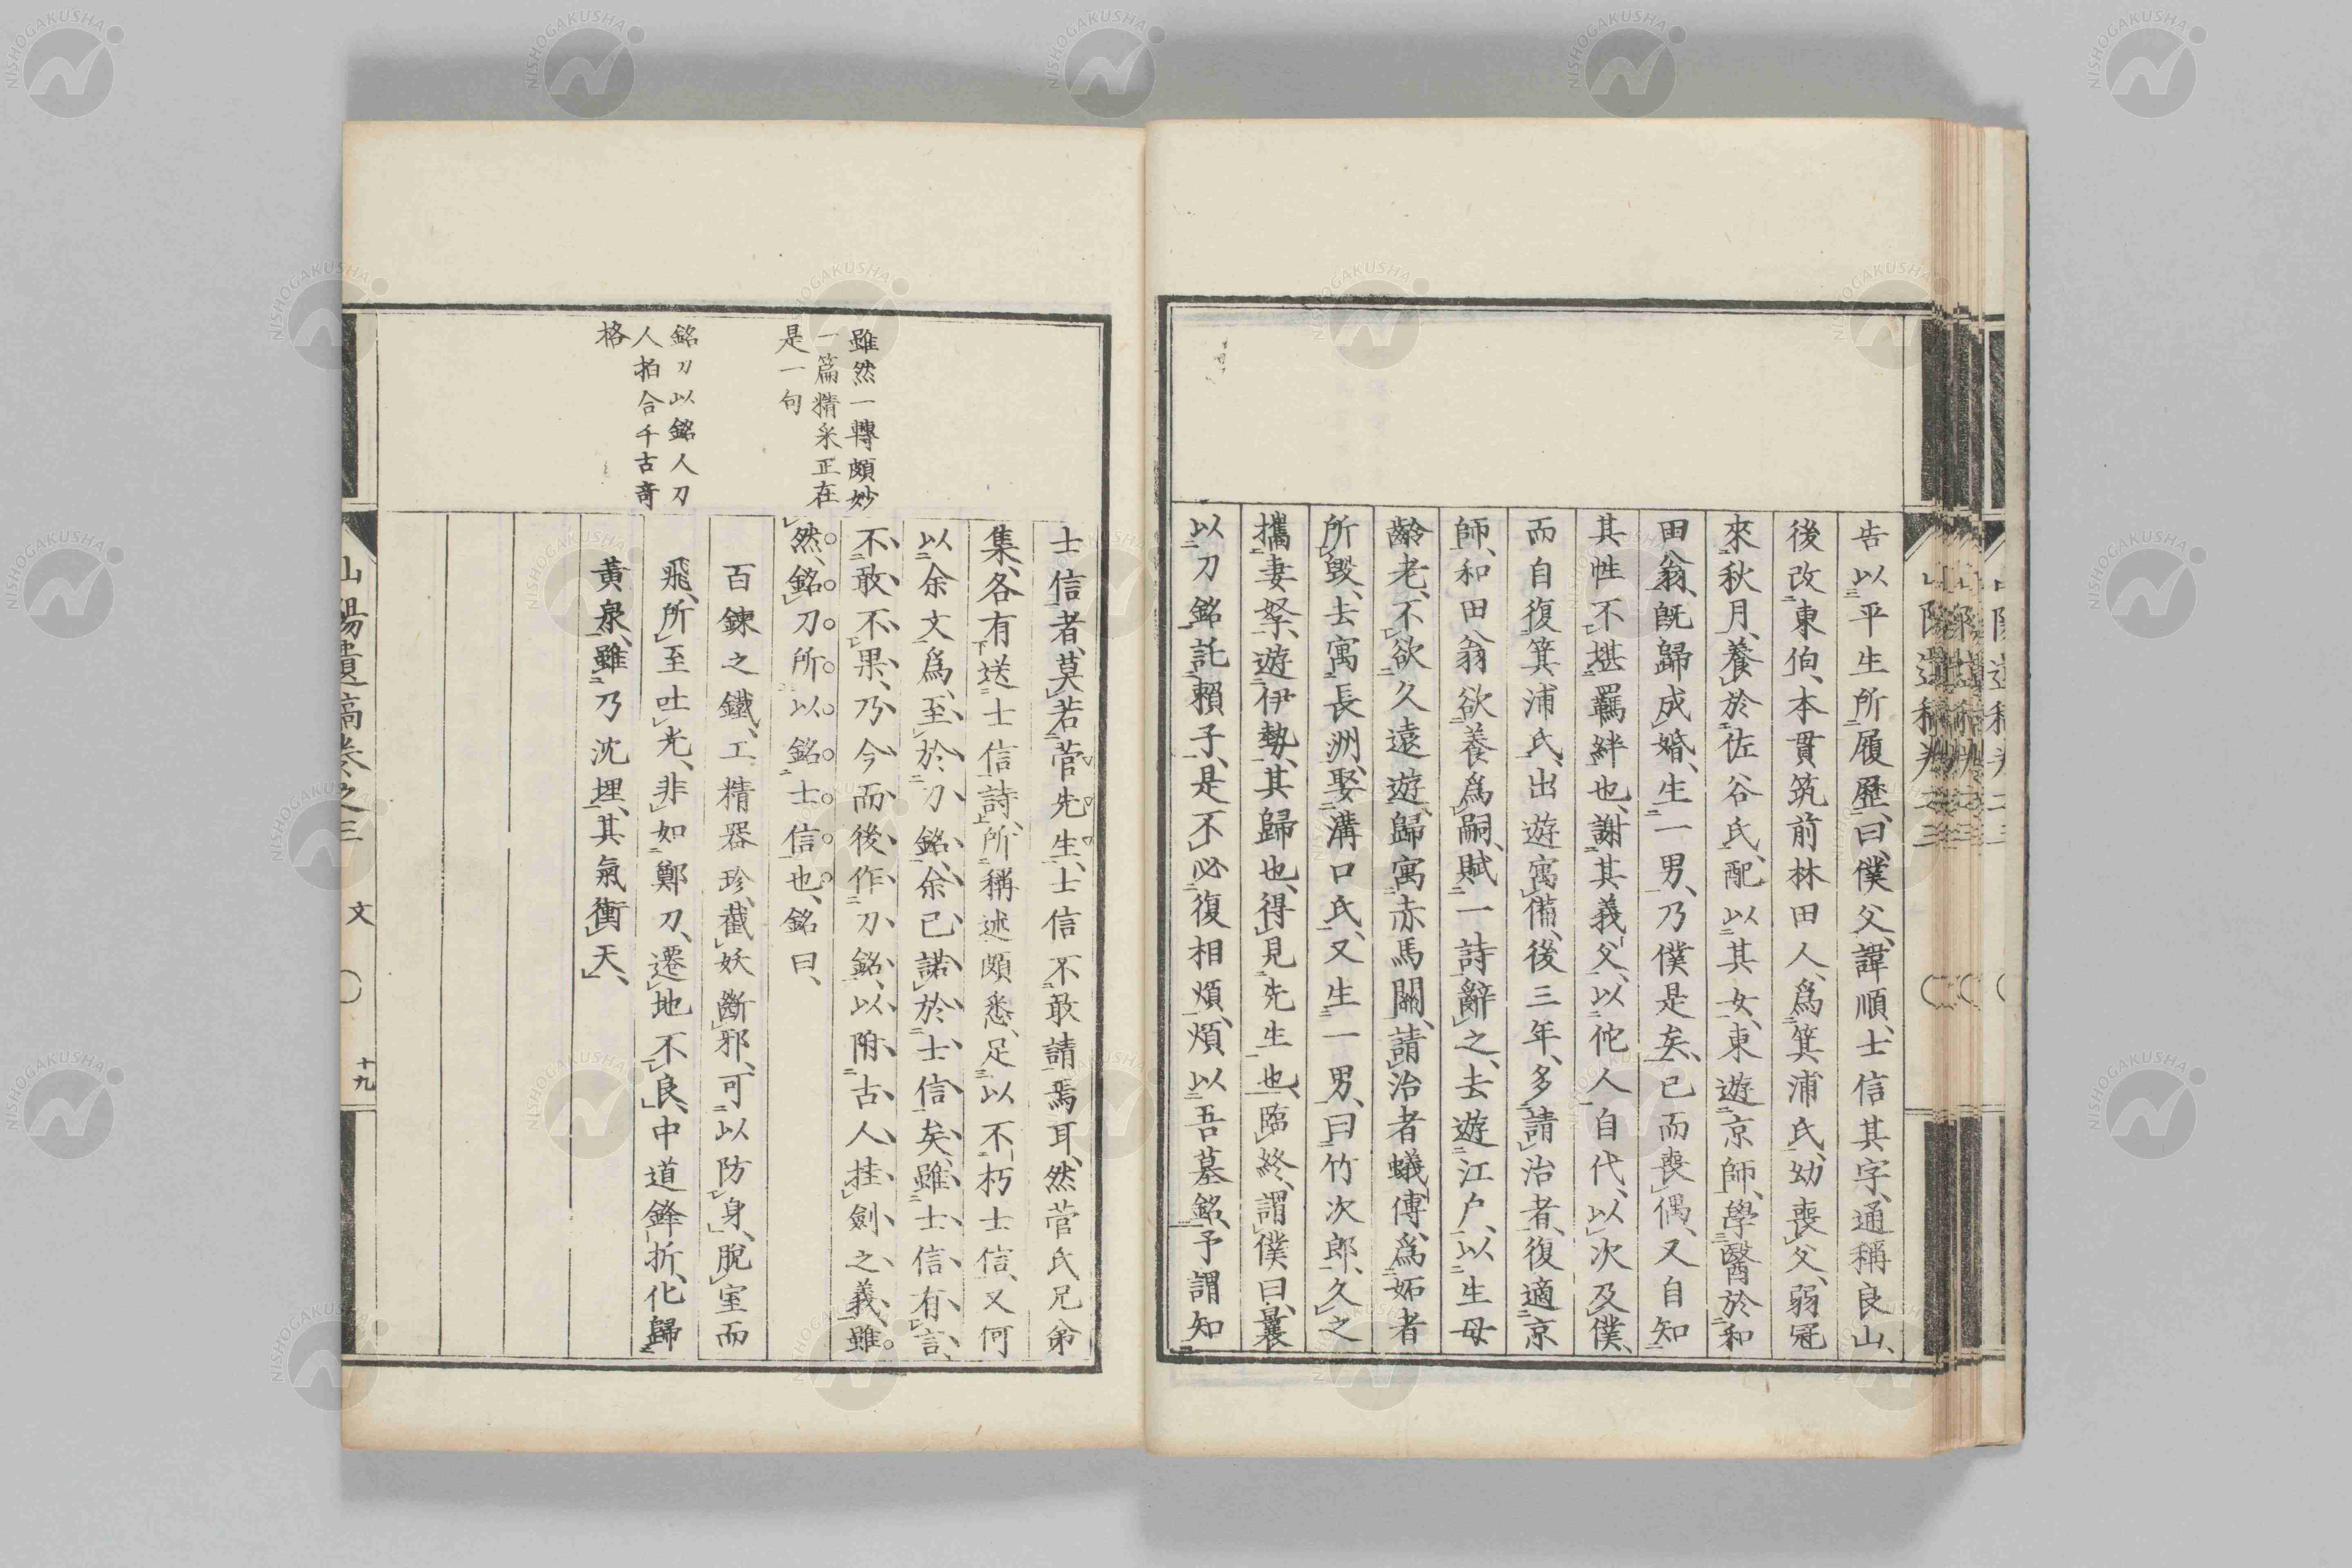 告以平生所履歷、曰、僕父、諱順、士信其字、通稱良山、
後改東伯、本貫筑前林田人、爲箕浦氏、幼喪父、弱冠
來秋月、養於佐谷氏、配以其女、東遊京師、學醫於和
田翁、既歸成婚、生一男、乃僕是矣、已而喪偶、又自知
其性不堪羈絆也、謝其義父、以佗人自代、以次及僕、
而自復箕浦氏、出遊寓備、後三年、多請治者、復適京
師、和田翁欲養爲嗣、賦一詩辭之、去遊江戶、以生母
齡老、不欲久遠遊、歸寓赤馬關、請治者蟻傳、爲妬者
所毀、去寓長洲、娶溝口氏、又生一男、曰竹次郎、久之
攜妻孥、遊伊勢、其歸也、得見先生也、臨終、謂僕曰、曩
以刀銘託賴子、是不必復相煩、煩以吾墓銘、予謂知
士信者、莫若菅先生、士信不敢請焉耳、然菅氏兄弟
集、各有送士信詩、所稱述頗悉、足以不朽士信、又何
以余文爲、至於刀銘、余已諾於士信矣、雖士信有言、
不敢不果、乃今而後作刀銘、以附古人挂劍之義、雖
然、銘刀所以銘士信也、銘曰、
百鍊之鐵、工精器珍、截妖斷邪、可以防身、脫室而
飛、所至吐光、非如鄭刀、遷地不良、中道鋒折、化歸
黃泉、雖乃沈埋、其氣衝天、
雖然一轉頗妙
一篇精采正在
是一句
銘刀以銘人刀
人拍合千古奇
格
山陽遺稿卷之三 文 十九
NISHOGAKUSHA